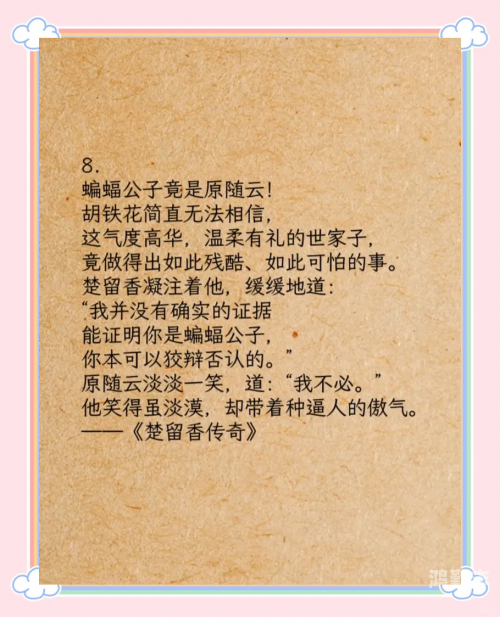 8.
蝙蝠公子竟是原随云！
胡铁花简直无法相信，
这气度高华，温柔有礼的世家子，
竟做得出如此残酷、如此可怕的事。
楚留香凝注着他，缓缓地道：
“我并没有确实的证据
能证明你是蝙蝠公子，
你本可以狡辩否认的。”
原随云淡淡一笑，道：“我不必。”
他笑得虽淡漠，却带着种逼人的傲气。
——《楚留香传奇》